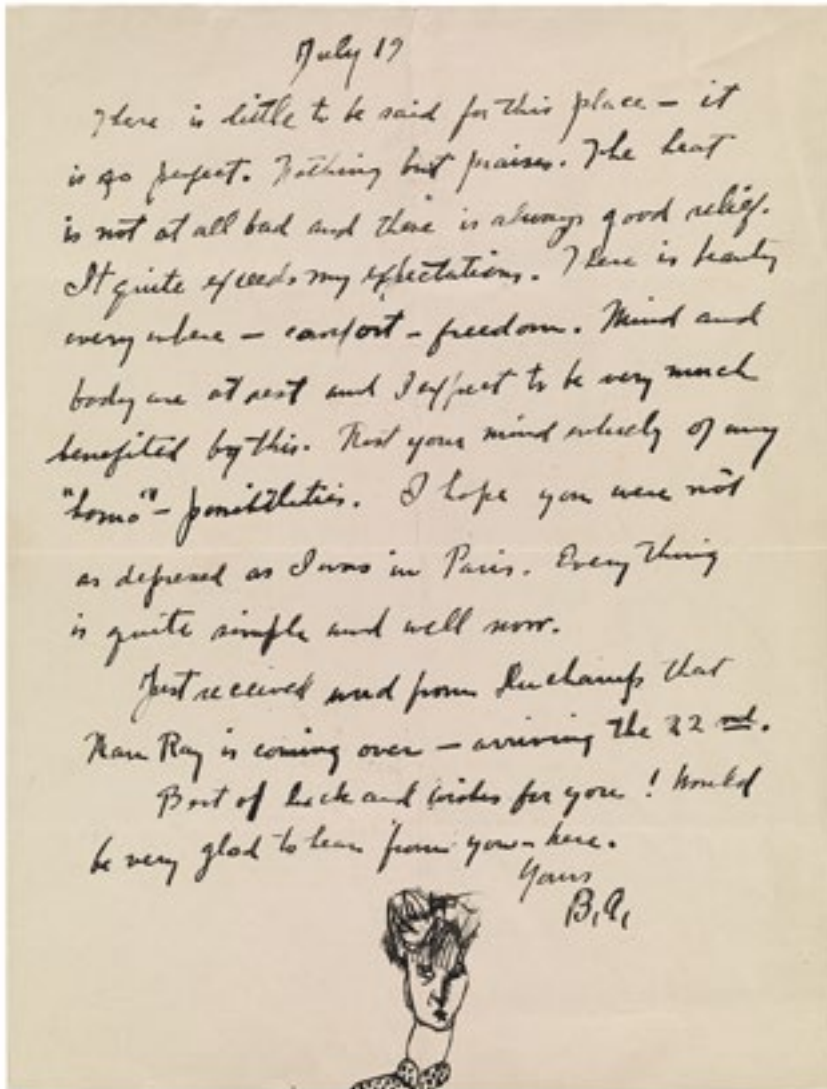 July 19
There is little to be said for this place — it
is so perfect. Nothing but praises. The heat
is not at all bad and there is always good relief.
It quite exceeds my expectations. There is beauty
everywhere — comfort — freedom. Mind and
body are at rest and I expect to be very much
benefited by this. Rest your mind entirely of any
"homo" — possibilities. I hope you were not
as depressed as I was in Paris. Everything
is quite simple and well now.
Just received word from Duchamp that
Man Ray is coming over — arriving the 22nd.
Best of luck and wishes for you! Would
be very glad to hear from you — here.
Yours
B.A.